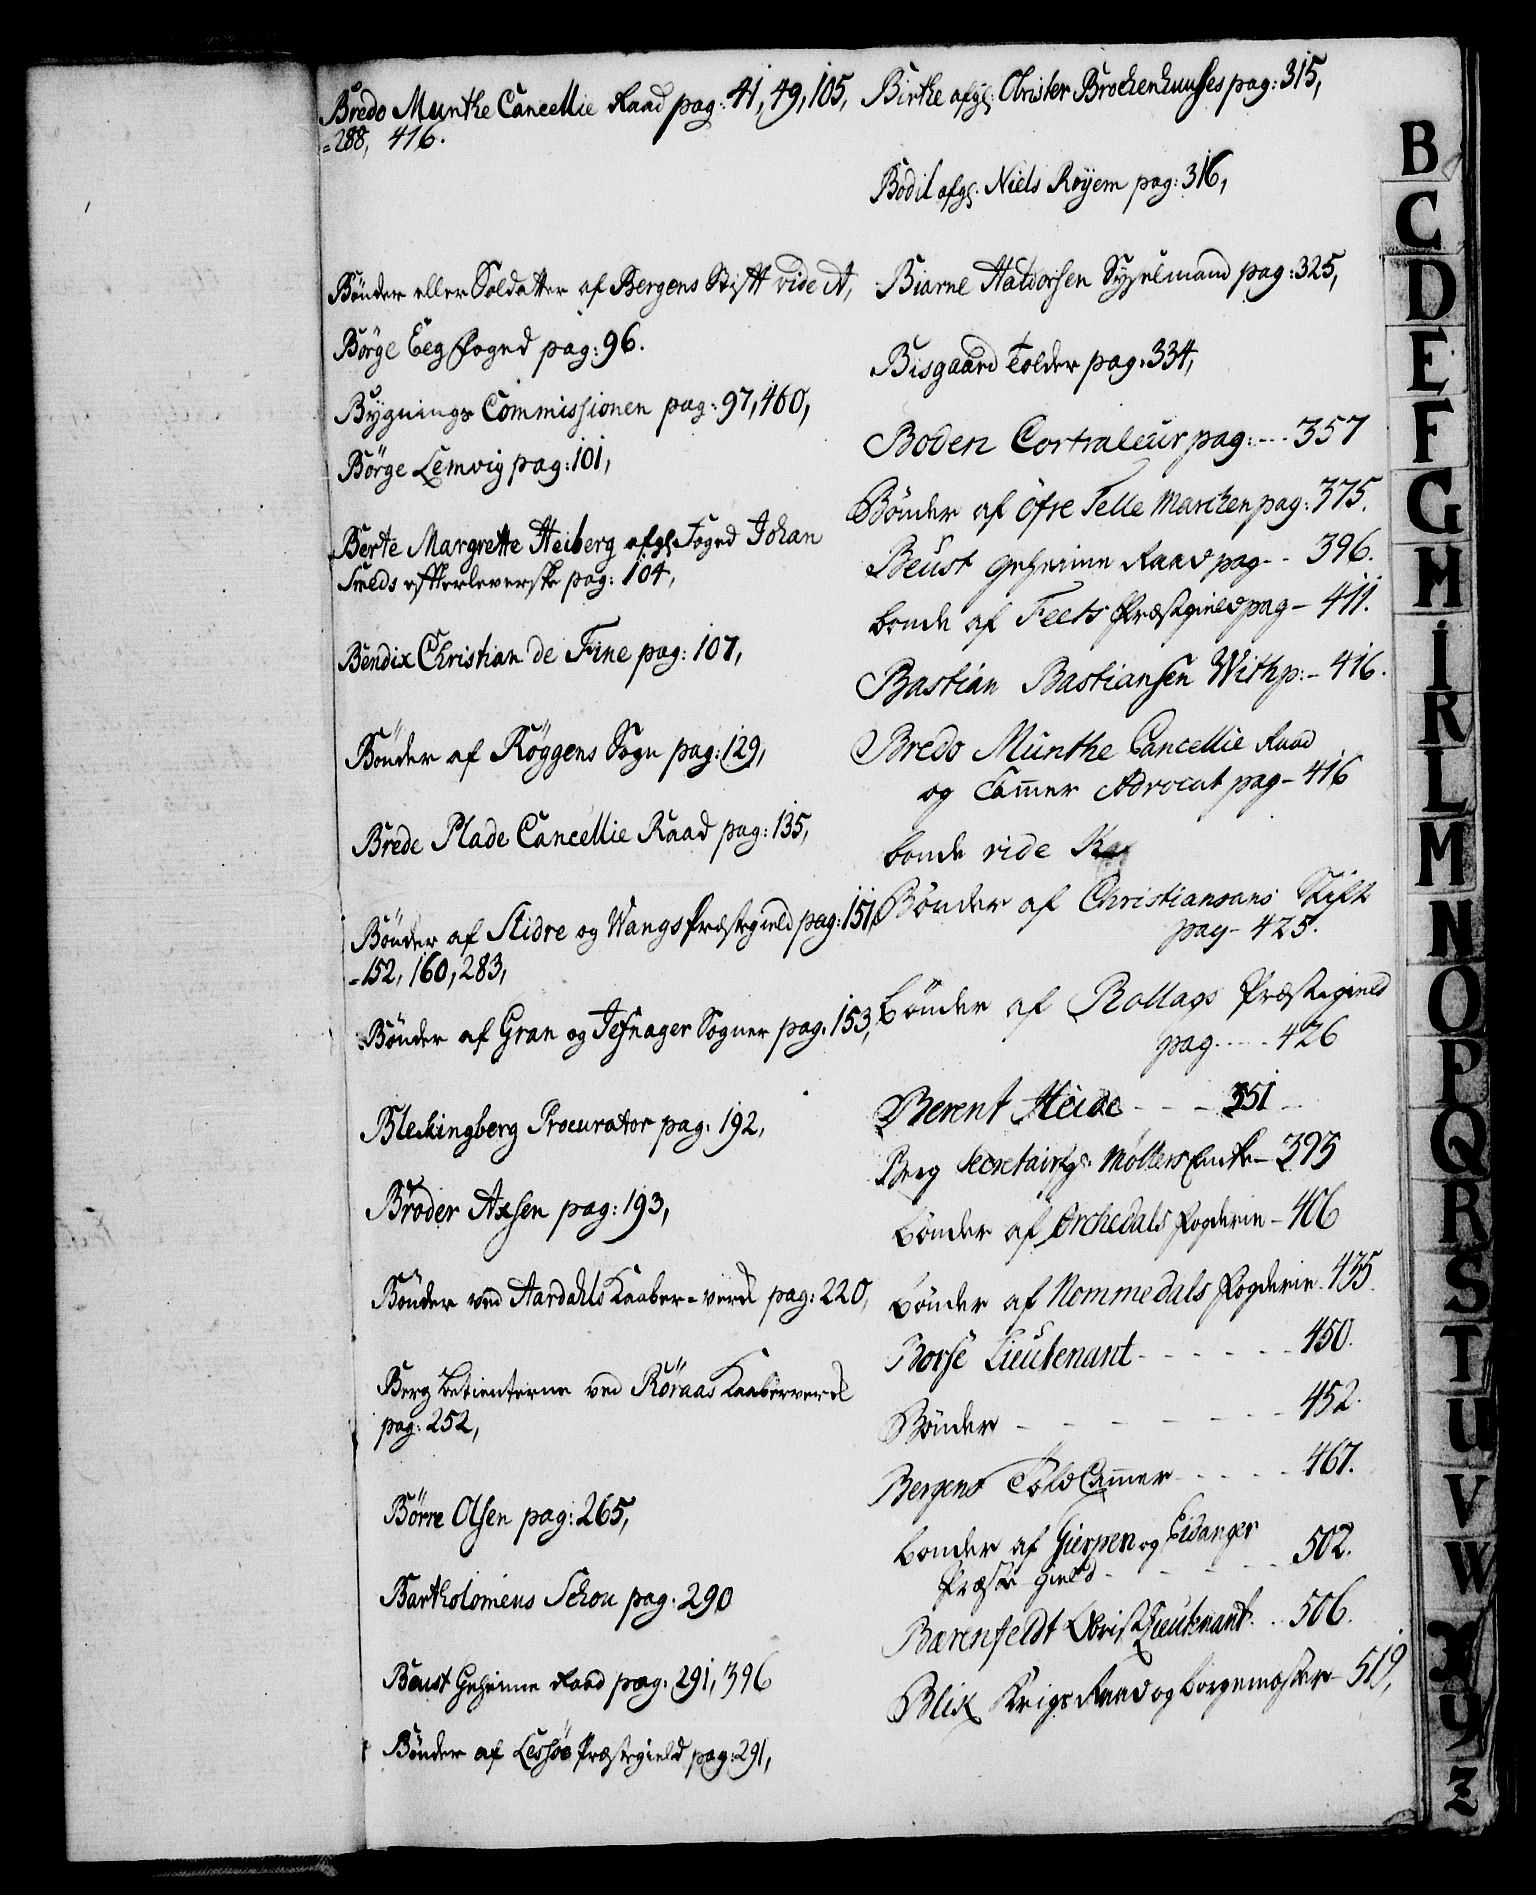 Bredo Munthe Cancellie Raad pag: 41, 49, 105,
=288, 416.
Bönder eller Soldatter af Bergens Stift vide A,
Börge Eeg foged pag: 96.
Bygnings Commissionen pag: 97, 460,
Börge Lemvig pag: 101,
Berte Margrette Heiberg afg: Foged Johan
Smeds efterleverske pag: 104,
Bendix Christian de Fine pag: 107,
Bönder af Röggens Sogn pag: 129,
Brede Plade Cancellie Raad pag: 135,
Bönder af Slidre og Wangs Præstegield pag: 151,
=152, 160, 283,
Bönder af Gran og Jefnager Sogner pag. 153,
Bleckingberg Procurator pag: 192,
Broder Axsen pag: 193,
Bönder ved Aardahls Kaaber-verk pag: 220,
Berg betienterne ved Röraas Kaaberverk
pag: 252,
Börre Olsen pag: 265,
Bartholomeus Schou pag. 290
Beust Geheime Raad pag. 291, 396
Bönder af Lessöe Præstegield pag: 291,
Birthe afg: Christer Brockenhuuses pag: 315,
Bodil afg: Niels Royem pag: 316,
Biarne Haldorsen Sysselmand pag: 325,
Bisgaard Tolder pag: 334,
Boden Contraleur pag: --- 357
Bönder af Öfre Telle Marcken pag: 375.
Beust Geheime Raad pag -- 396.
bonde af Feets Præstgield pag - 411.
Bastian Bastiansen With p: - 416.
Bredo Munthe Cancellie Raad
og Cammer Advocat pag - 416
bonde vide K
Bönder af Christiansans Stift
pag - 425.
bönder af Rollags Præstegield
pag ---- 426
Berent Heide - - - 351
Berg Secretair afg: Möllers Encke - 393
bönder af Orchedals fogderie - 406
bönder af Nommedals fogderie - 435.
Borse Lieutenant - - - - - - 450.
Bönder - - - - - - - 452.
Bergens Told Cammer - - - - - 467.
bonder af Gierpen og Eidanger
Præste gield - - - - - 502.
Bærenfeldt Obrist Lieutenant - - 506.
Blix Krigs Raad og borgemester - 519,
B
C
D
E
F
G
H
I
K
L
M
N
O
P
Q
R
S
T
U
V
W
X
Y
Z